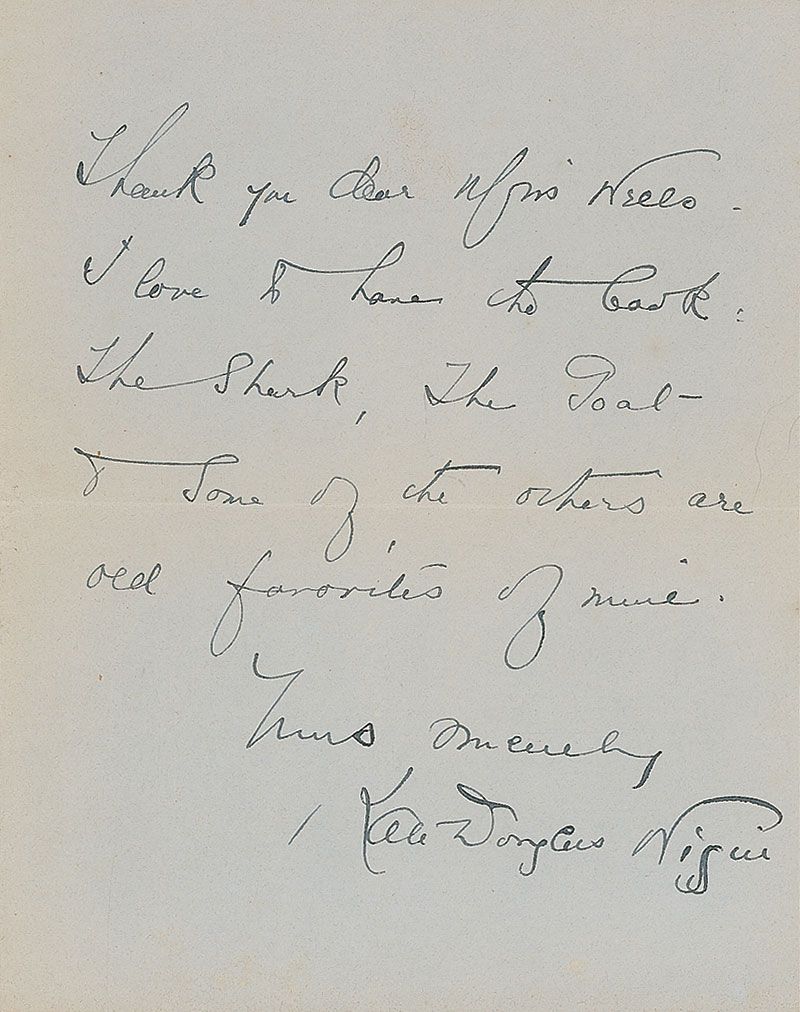 Thank you dear Miss Wells -
I love to have the book:
The Shark, The Goat
& some of the others are
old favorites of mine.
Yours sincerely
Kate Douglas Wiggin